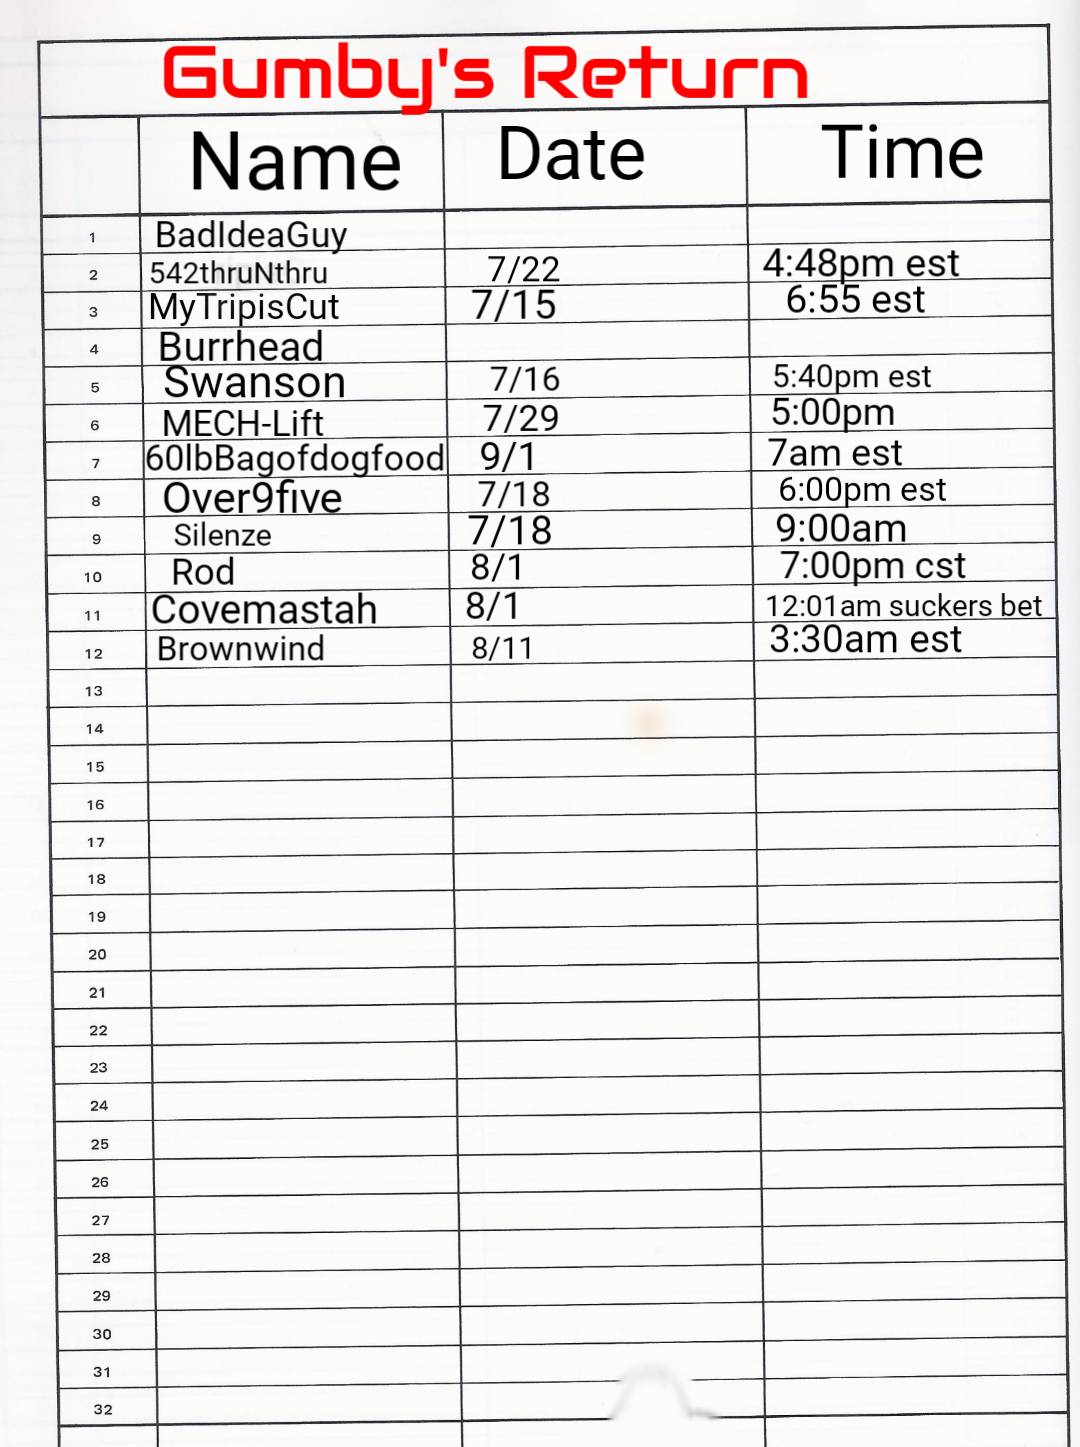 Gumby's Return
Name Date Time
1 BadIdeaGuy
2 542thruNthru 7/22 4:48pm est
3 MyTripisCut 7/15 6:55 est
4 Burrhead
5 Swanson 7/16 5:40pm est
6 MECH-Lift 7/29 5:00pm
7 60lbBagofdogfood 9/1 7am est
8 Over9five 7/18 6:00pm est
9 Silenze 7/18 9:00am
10 Rod 8/1 7:00pm cst
11 Covemastah 8/1 12:01am suckers bet
12 Brownwind 8/11 3:30am est
13
14
15
16
17
18
19
20
21
22
23
24
25
26
27
28
29
30
31
32